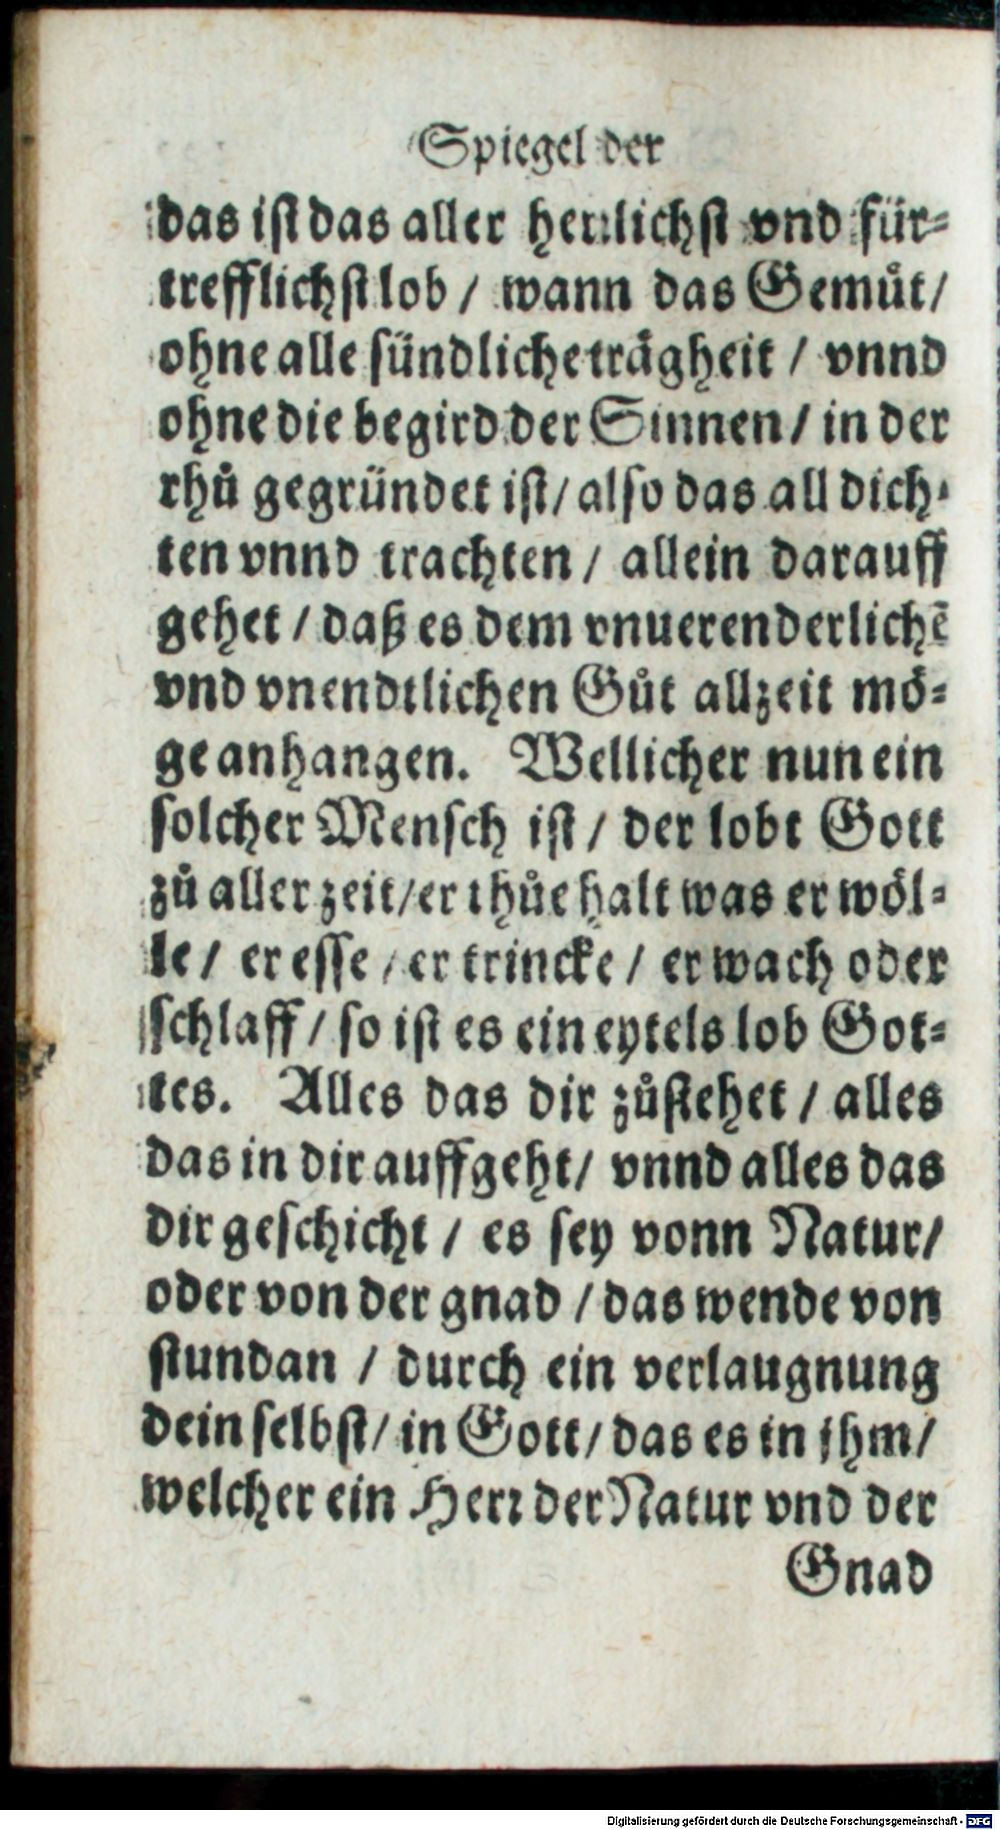 Spiegel der
das iſt das aller herꝛlichſt vnd für⸗
trefflichſt lob / wann das Gemuͤt /
ohne alle ſündliche traͤgheit / vnnd
ohne die begird der Sinnen / in der
rhuͦ gegründet iſt / alſo das all dich⸗
ten vnnd trachten / allein darauff
gehet / daß es dem vnuerenderlichē
vnd vnendtlichen Guͦt allzeit moͤ⸗
ge anhangen. Wellicher nun ein
ſolcher Menſch iſt / der lobt Gott
zuͦ aller zeit / er thuͦe halt was er woͤl⸗
le / er eſſe / er trincke / er wach oder
ſchlaff / ſo iſt es ein eytels lob Got⸗
tes. Alles das dir zuͦſtehet / alles
das in dir auffgeht / vnnd alles das
dir geſchicht / es ſey vonn Natur /
oder von der gnad / das wende von
ſtundan / durch ein verlaugnung
dein ſelbſt / in Gott / das es in jhm /
welcher ein Herꝛ der Natur vnd der
Gnad
Digitalisierung gefördert durch die Deutsche Forschungsgemeinschaft - DFG